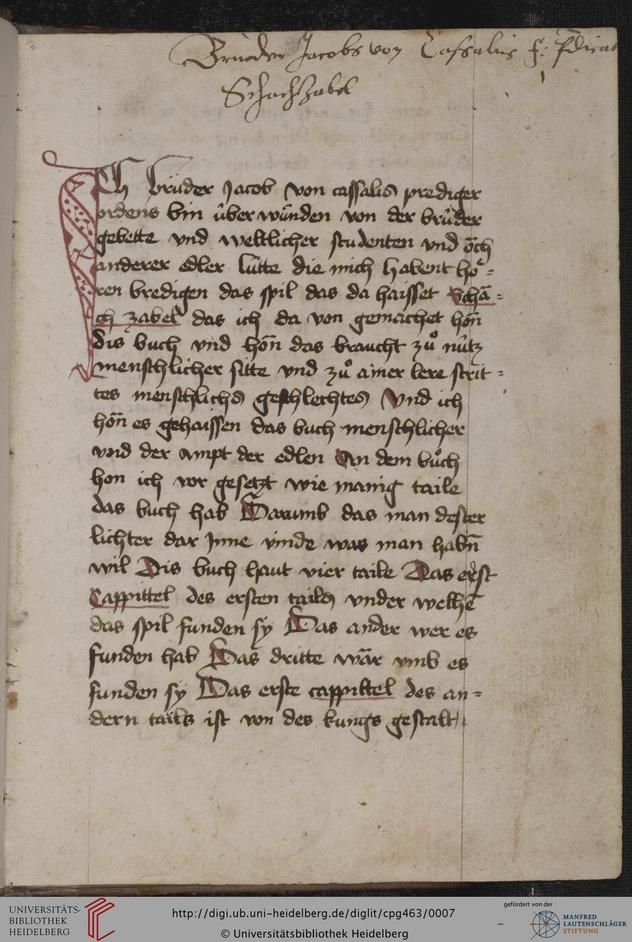 Brueder Jacobs von Cassalis f: pdicat
Schachzabel
Ich brůder Jacob von cassalis prediger
ordens bin über wunden von der brůder
gebette vnd weltlicher studenten vnd öch
anderer edler lütte die mich habent hö=
ren bredigen das spil das da haisset Scha=
ch zabel das ich da von gemachet hon
dis buch vnd hon das braucht zů nutz
menschlicher sitte vnd zů ainer lere strit=
tes menschlichs geschlechtes Vnd ich
hon es gehaissen das buch menschlicher
vnd der ampt der edlen An dem bůch
hon ich vor gesetzt wie manig taile
das buch hab Darumb das man dester
lichter dar Inne vinde was man habn
wil Dis buch haut vier taile Das erst
Cappittel des ersten tails vnder welhe
das spil funden sy Das ander wer es
funden hab Das dritte wär vmb es
funden sy Das erste cappittel des an=
dern tails ist von des kunigs gestalt
UNIVERSITÄTS-
BIBLIOTHEK
HEIDELBERG
http://digi.ub.uni-heidelberg.de/diglit/cpg463/0007
© Universitätsbibliothek Heidelberg
gefördert von der
MANFRED
LAUTENSCHLÄGER
STIFTUNG